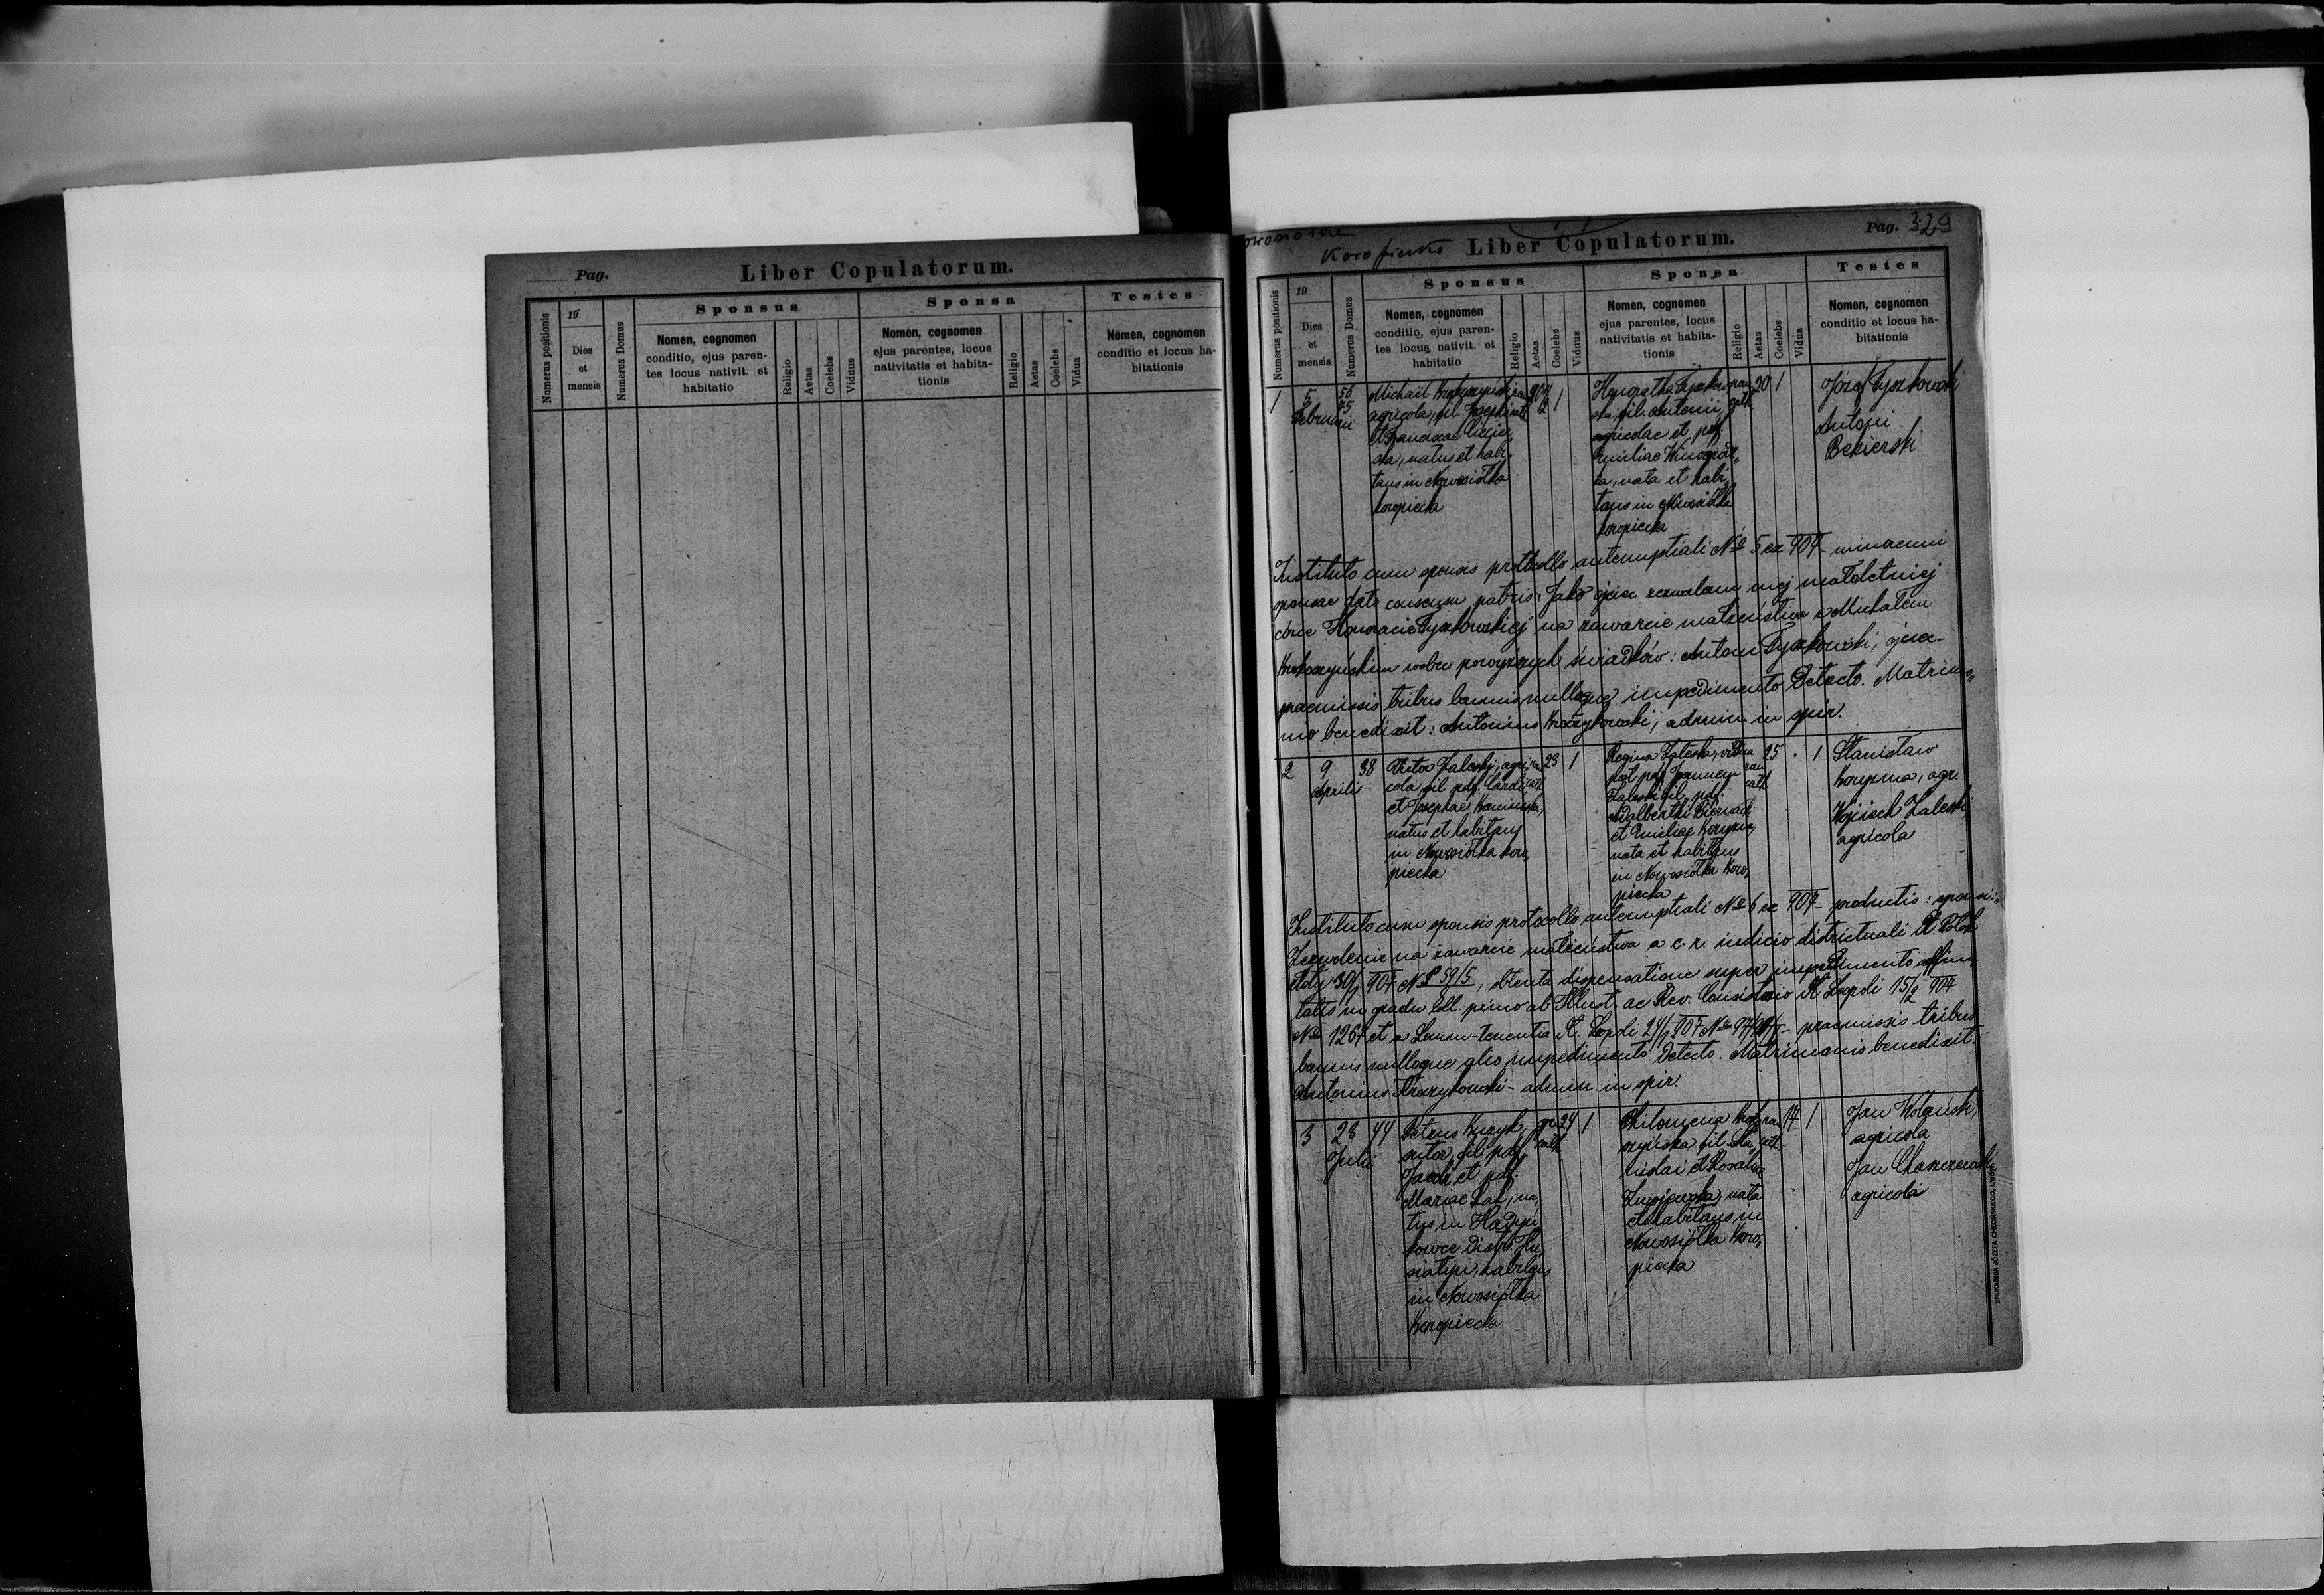 Pag.
Liber Copulatorum.
Numerus positionis
19
Dies
et
mensis
Numerus Domus
Sponsus
Nomen, cognomen
conditio, ejus paren-
tes locus nativit. et
habitatio
Religio
Aetas
Coelebs
Viduus
Sponsa
Nomen, cognomen
ejus parentes, locus
nativitatis et habita-
tionis
Religio
Aetas
Coelebs
Vidua
Testes
Nomen, cognomen
conditio et locus ha-
bitationis
Pag. 329
Liber Copulatorum.
Numerus positionis
19
Dies
et
mensis
Numerus Domus
Sponsus
Nomen, cognomen
conditio, ejus paren-
tes locus nativit. et
habitatio
Religio
Aetas
Coelebs
Viduus
Sponsa
Nomen, cognomen
ejus parentes, locus
nativitatis et habita-
tionis
Religio
Aetas
Coelebs
Vidua
Testes
Nomen, cognomen
conditio et locus ha-
bitationis
1
5
Februarii
56
Michaël
agricola, fil. Josephi
et Franciscae
ska, natus et habi„
tans in Nowosiółka
koropiecka
1
Honoratha Tyszkow
ska, fil. Antonii,
agricolae et
Emiliae Winograd„
ka, nata et habi„
tans in Nowosiółka
koropiecka
rom
cath
20
1
Józef Tyszkowski
Antoni
Bekierski
Instituto cum sponsis protocollo antenuptiali No 5 ex 907 minorenni
sponsae dato consensu patris: Jako ojciec zezwalam mej małoletniej
córce Honoracie Tyszkowskiej na zawarcie małżeństwa z Michałem
Krokoszyńskim wobec powyższych świadków: Antoni Tyszkowski, ojciec
praemissis tribus bannis nulloque impedimento detecto. Matrimo„
nio benedixit: Antonius Krożykowski, admin. in spir.
2
9
Aprilis
38
Victor Zaleski, agri
cola fil. pdf. Caroli
et Josephae Kamińska,
natus et habitans
in Nowosiółka koro„
piecka
23
1
Regina Zaleska, vidua
post pdf. Joannem
Zaleski fil. pdf.
Adalberthi
et Emiliae
nata et habitans
in Nowosiółka Koro„
piecka
rom
cath
25
1
Stanisław
agr.
Wojciech Zaleski,
agricola
Instituto cum sponsis protocollo antenuptiali No 6 ex 907 productis: sponsi
Zezwolenie na zawarcie małżeństwa a c. r. iudicio districtuali
907 No P 59/5, obtenta dispensatione super impedimento affini„
tatis in gradu primo ab Illust. ac Rev. Consistorio Leopoli 15/2 907
No 1267 et a Locum-tenentia Leopoli 907 praemissis tribus
bannis nulloque alio impedimento detecto. Matrimonio benedixit:
Antonius Krożykowski - admin. in spir.
3
28
Julii
44
Petrus Kuzyk,
sutor, fil. pdf.
Jacobi et pdf.
Mariae na„
tus in Hadyń„
kowce distr. Hu„
siatyn, habitans
in Nowosiółka
Koropiecka
gr
cath
24
1
Philomena
szyńska fil. Sta„
nislai et Rosaliae
nata
et habitans in
Nowosiółka Koro„
piecka
17
1
Jan Wolański,
agricola
Jan
agricola
DRUKARNIA JÓZEFA CHĘCIŃSKIEGO, LWÓW